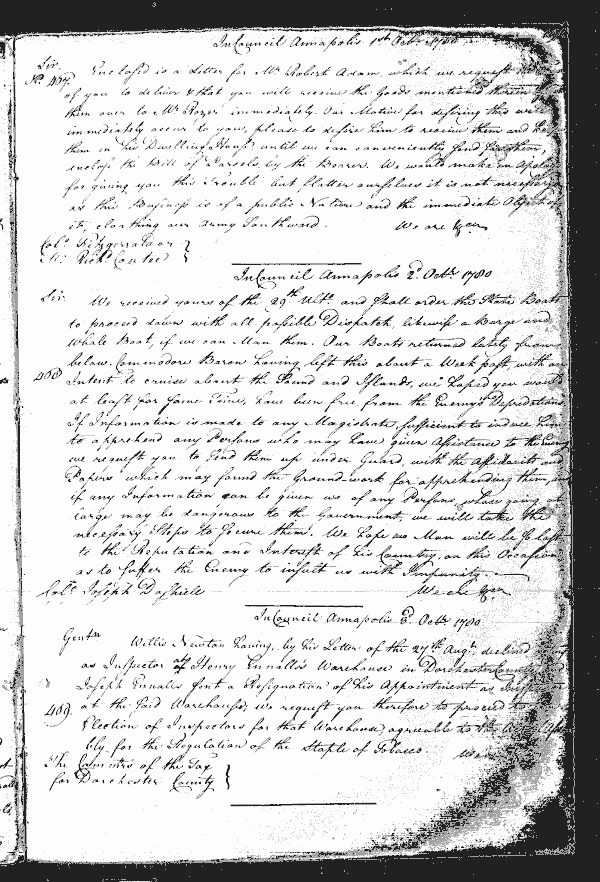 In Council Annapolis 1st Octr 1780
Sir.
No. 407. Enclosed is a Letter for Mr Robert Adam, which we request
of you to deliver & that you will receive the Goods mentioned therein
them over to Mr Rozer immediately. Our Motive for desiring this will
immediately occur to you, please to desire him to receive them and
them in his Dwelling House, until we can conveniently send for them,
enclose the Bill of Parcels by the Bearer. We would make an Apology
for giving you this Trouble but flatter ourselves it is not necessary
as this Business is of a public Nature and the immediate Object of
it, cloathing our Army Southward. We are &ca
Colo. Fitzgerald or
Mr. Richd Conteed
In Council Annapolis 2d. Octr. 1780
Sir. We received yours of the 29th Ulto. and shall order the State Boats
to proceed down with all possible Dispatch, likewise a Barge and
Whale Boat, if we can Man them. Our Boats returned lately from
below. Commodore Baron having left this about a Week past, with an
408 Intent to cruise about the Sound and Islands, we hoped you would
at least for some Time, have been free from the Enemy's Depredations
If Information is made to any Magistrate, sufficient to induce him
to apprehend any Persons who may have given Assistance to the Enemy
we request you to send them up under Guard, with the Affidavits and
Papers which may found the Ground-work for apprehending them,
if any Information can be given us of any Persons, whose going at
large may be dangerous to the Government, we will take the
necessary Steps to secure them. We hope no Man will be so lost
to the Reputation and Interest of his Country, on this Occasion
as to suffer the Enemy to insult us with Impunity.
Colo. Joseph Dashiell We are &ca
In Council Annapolis 3. Octr. 1780
Gentn Willis Newton having, by his Letter of the 27th Augt. declined
as Inspector of Henry Ennalls's Warehouse in Dorchester County
Joseph Ennalls sent a Resignation of his Appointment as
409. at the said Warehouse, we request you therefore to proceed to
Election of Inspectors for that Warehouse, agreeable to
bly. for the Regulation of the Staple of Tobacco. We
The Commrs of the Tax
for Dorchester County